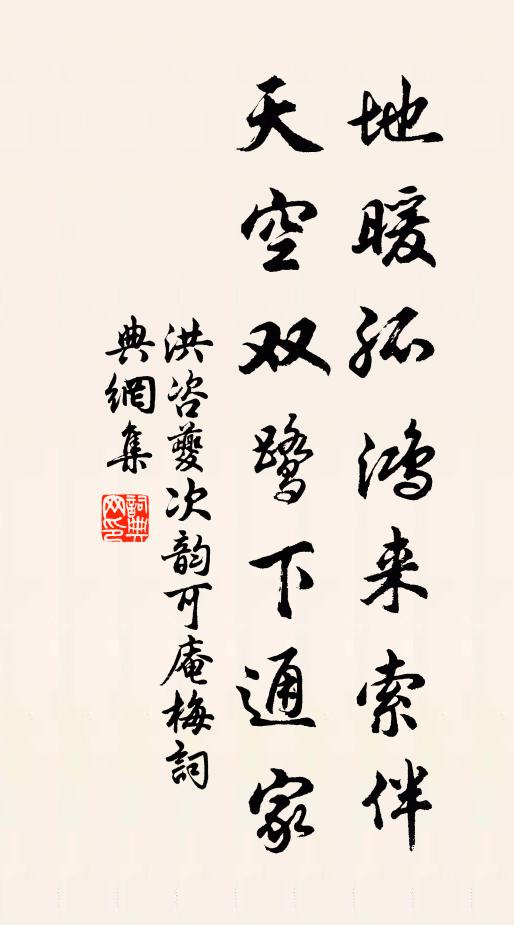 地暖孤鸿来索伴
天空双鹭下通家
洪咨夔次韵可庵梅詞
典網集
詞典网印